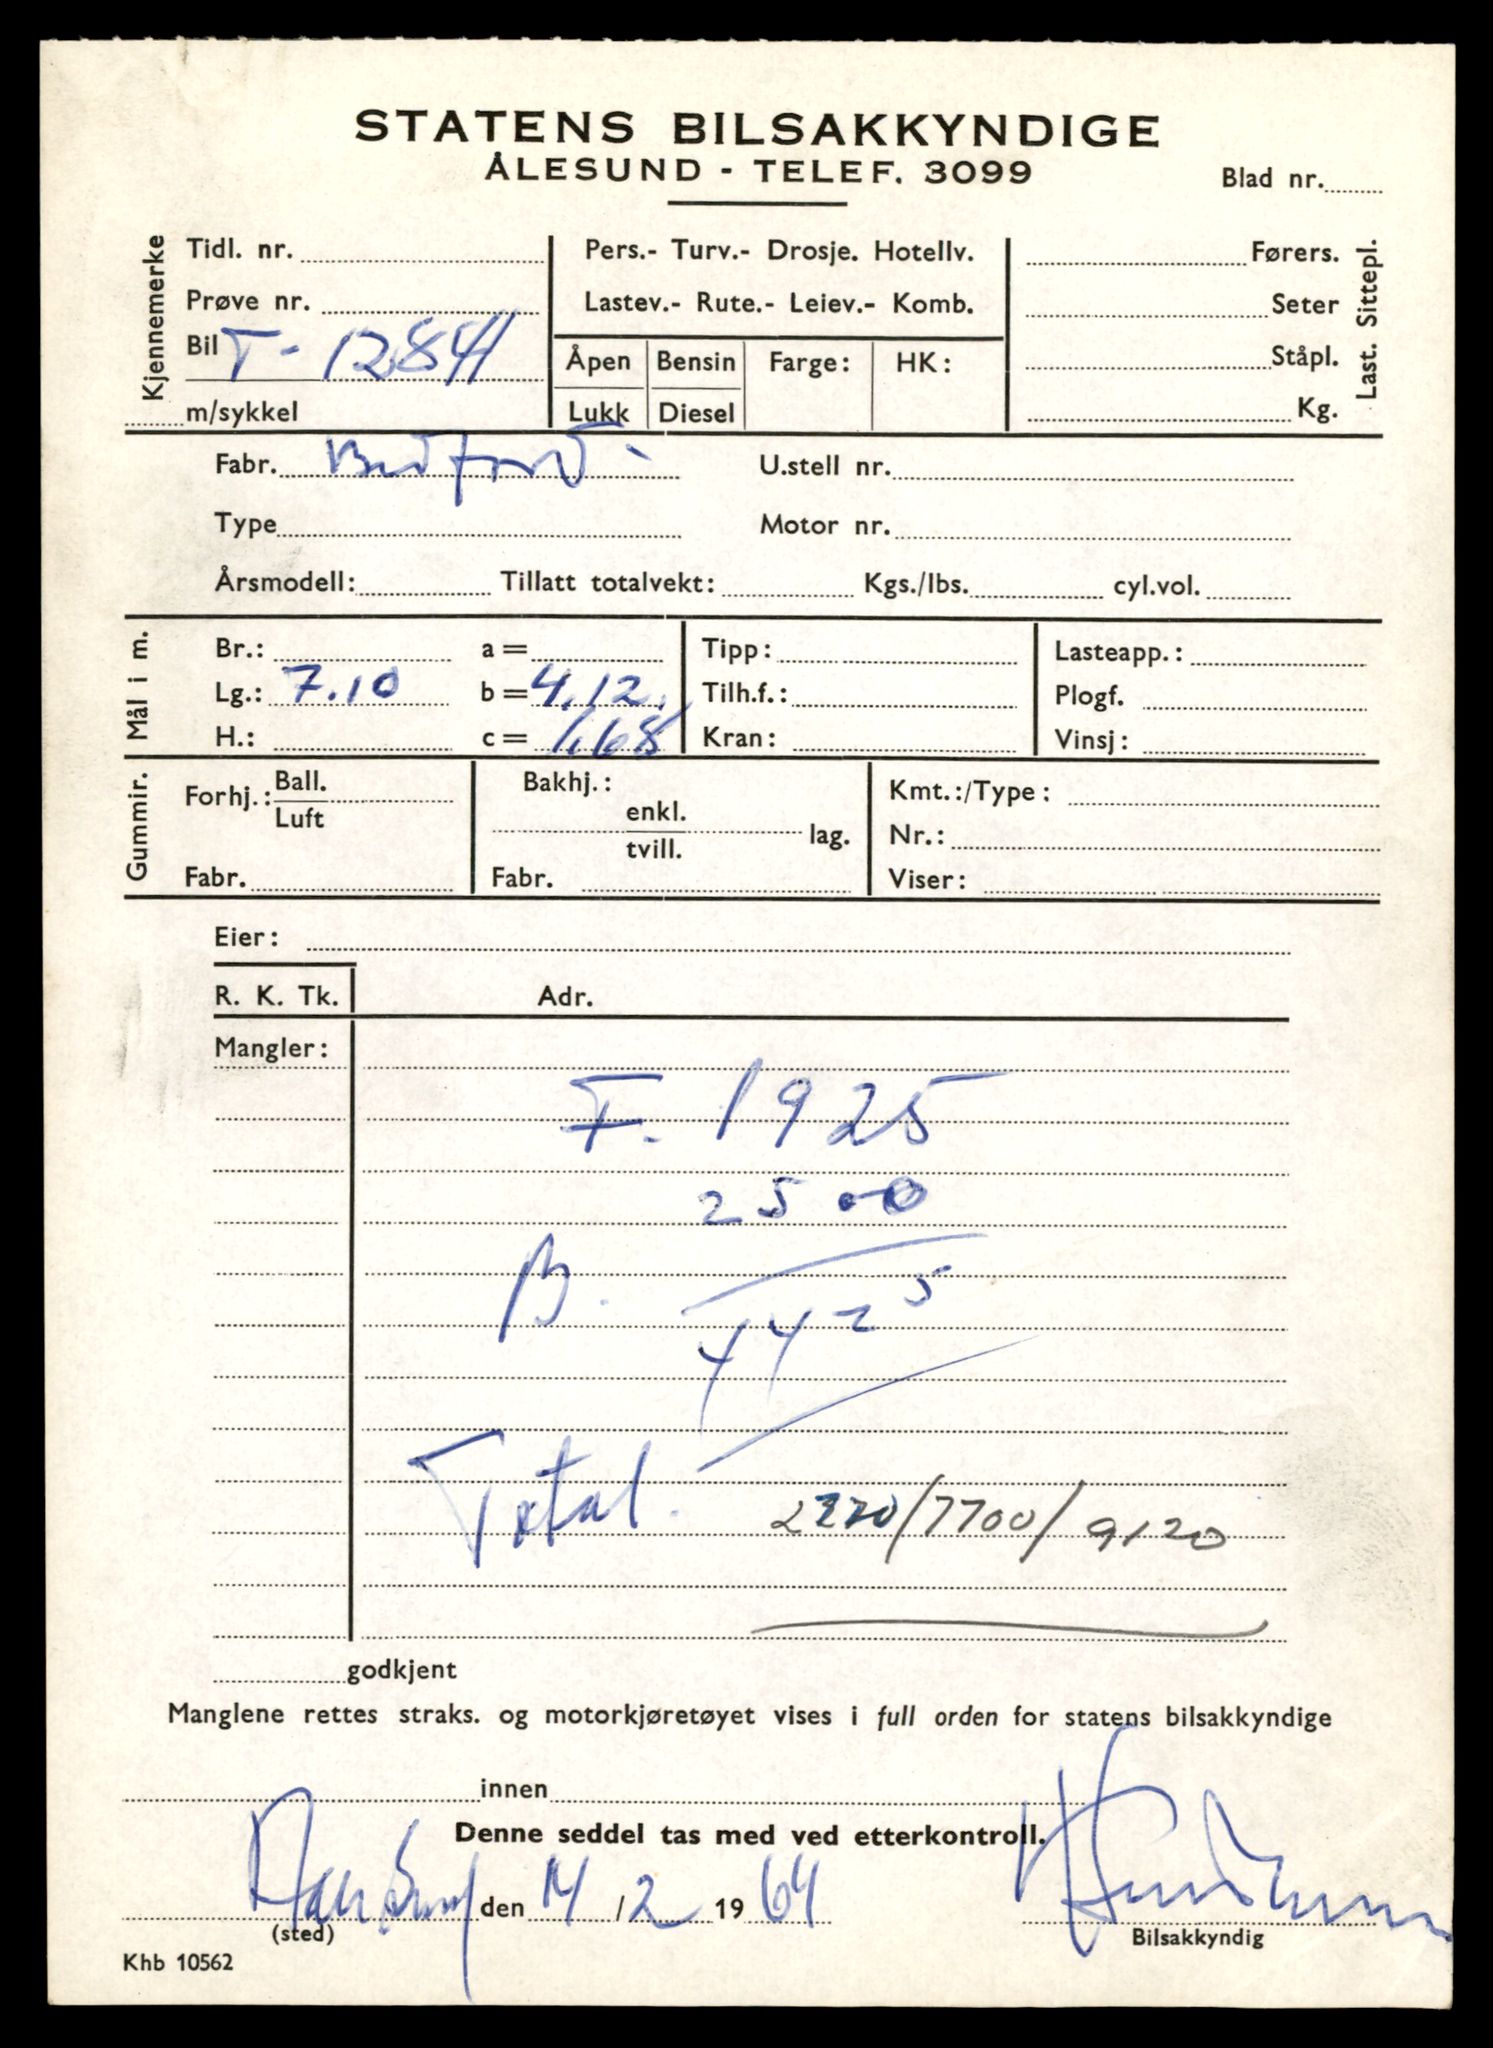 STATENS BILSAKKYNDIGE
ÅLESUND - TELEF. 3099
Blad nr.
Kjennemerke
Tidl. nr.
Prøve nr.
Bil T-12841
m/sykkel
Pers.- Turv.- Drosje. Hotellv.
Lastev.- Rute.- Leiev.- Komb.
Åpen Bensin Farge: HK:
Lukk Diesel
Førers.
Seter
Ståpl.
Kg.
Last. Sittepl.
Fabr. Bedford U.stell nr.
Type Motor nr.
Årsmodell: Tillatt totalvekt: Kgs./lbs. cyl.vol.
Mål i m.
Br.: a = Tipp: Lasteapp.:
Lg.: 7.10 b = 4.12. Tilh.f.: Plogf.
H.: c = 1.68 Kran: Vinsj:
Gummir.
Forhj.: Ball.
Luft
Fabr.
Bakhj.:
enkl.
tvill. lag.
Fabr.
Kmt.:/Type:
Nr.:
Viser:
Eier:
R. K. Tk. Adr.
Mangler:
F. 1925
2500
B.
4425
Total. 2270/7700/9120
godkjent
Manglene rettes straks. og motorkjøretøyet vises i full orden for statens bilsakkyndige
innen
Denne seddel tas med ved etterkontroll.
den 14/2 1964
(sted)
Bilsakkyndig
Khb 10562